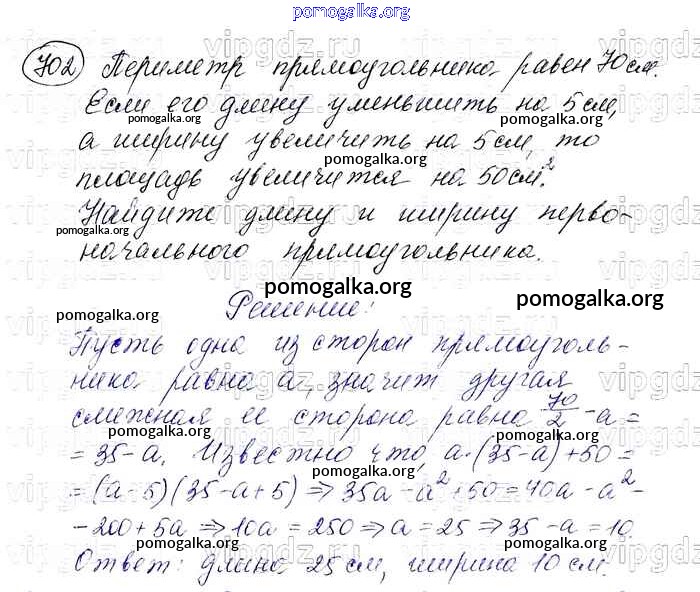 pomogalka.org
702 Периметр прямоугольника равен 70 см.
Если его длину уменьшить на 5 см,
pomogalka.org
а ширину увеличить на 5 см, то
pomogalka.org
площадь увеличится на 50 см².
Найдите длину и ширину перво-
pomogalka.org
начального прямоугольника.
pomogalka.org
Решение:
pomogalka.org
pomogalka.org
Пусть одна из сторон прямоуголь-
ника равна a, значит другая
pomogalka.org
смежная ей сторона равна 70/2 - a =
pomogalka.org
= 35 - a. Известно что, a·(35-a)+50 =
pomogalka.org
= (a-5)(35-a+5) ⇒ 35a - a² + 50 = 40a - a² -
- 200 + 5a ⇒ 10a = 250 ⇒ a = 25 ⇒ 35 - a = 10.
pomogalka.org
pomogalka.org
Ответ: длина 25 см, ширина 10 см.
pomogalka.org